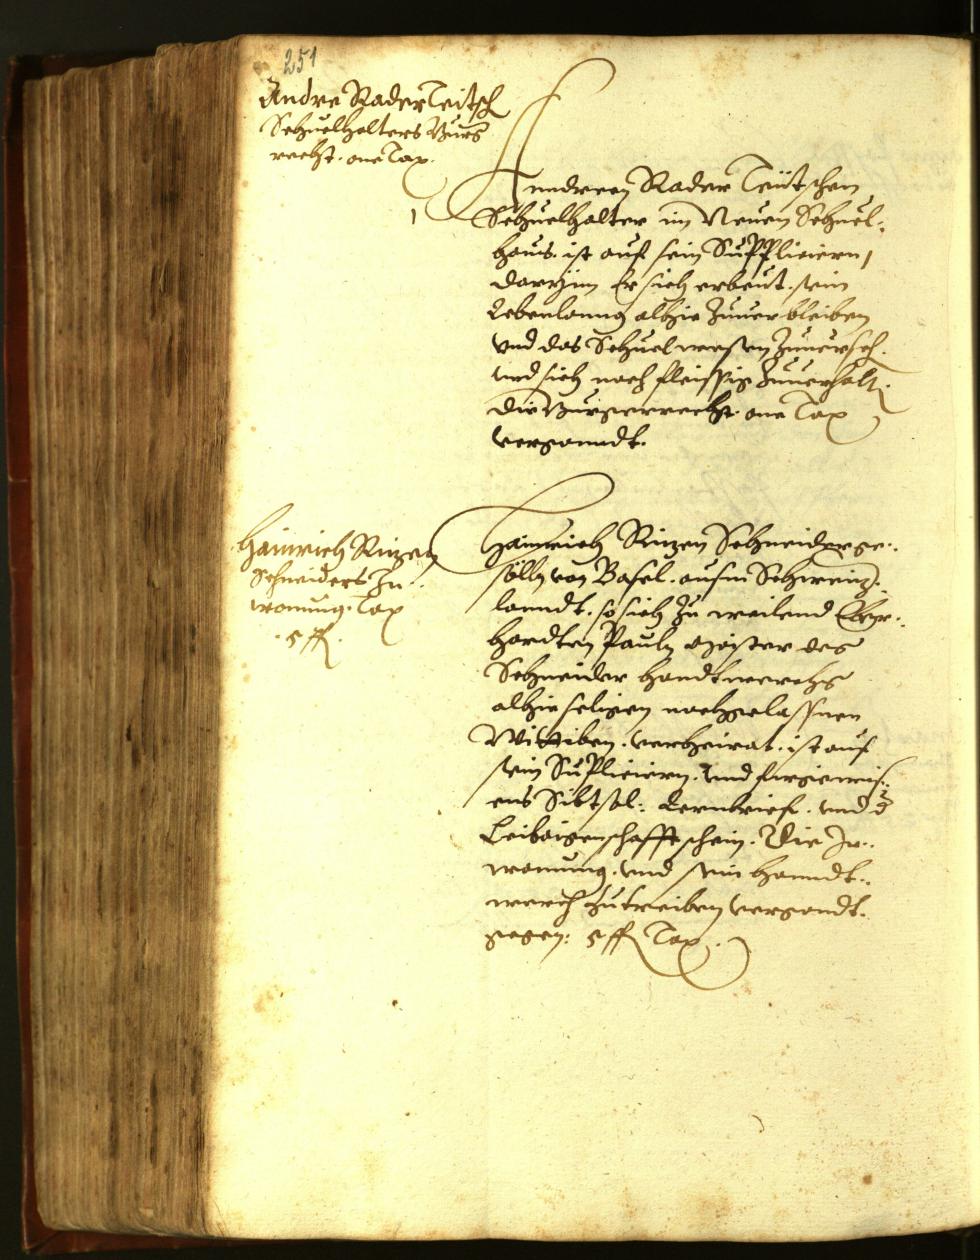 251
Andre Rader Teitsch
Schuelhalters Burg
recht. one Tax.
Anndreen Rader Teütschen
Schuelhalter im Neuen Schuel:
haus. ist auf sein Suppliciern,
darynn Er sich erbeut. sein
Lebenlanng alhie zuuerbleiben
vnd das Schuelwesen zuuerseh.
vnd sich noch fleissig zuuerhalt.
die Burgerrecht. one Tax
vergonndt.
Hainrich Rinzen
Schneiders In
wonung. Tax
5 ff.
Hainrich Rinzen Schneiderge:
sölln von Basel. aussm Schweitz:
lanndt. so sich zu weilend Eber:
hardten Pauln maister des
Schneider Handtwerchs
alhie seligen nachgelassnen
Wittiben. verheirat. ist auf
sein Supliciern. vnd furgewis:
ens Lernbrief. vnd
Leibaigenschafft schein. Die In:
wonung. vnd sein Hanndt:
werch zutreiben vergondt.
gegen: 5 ff Tax.